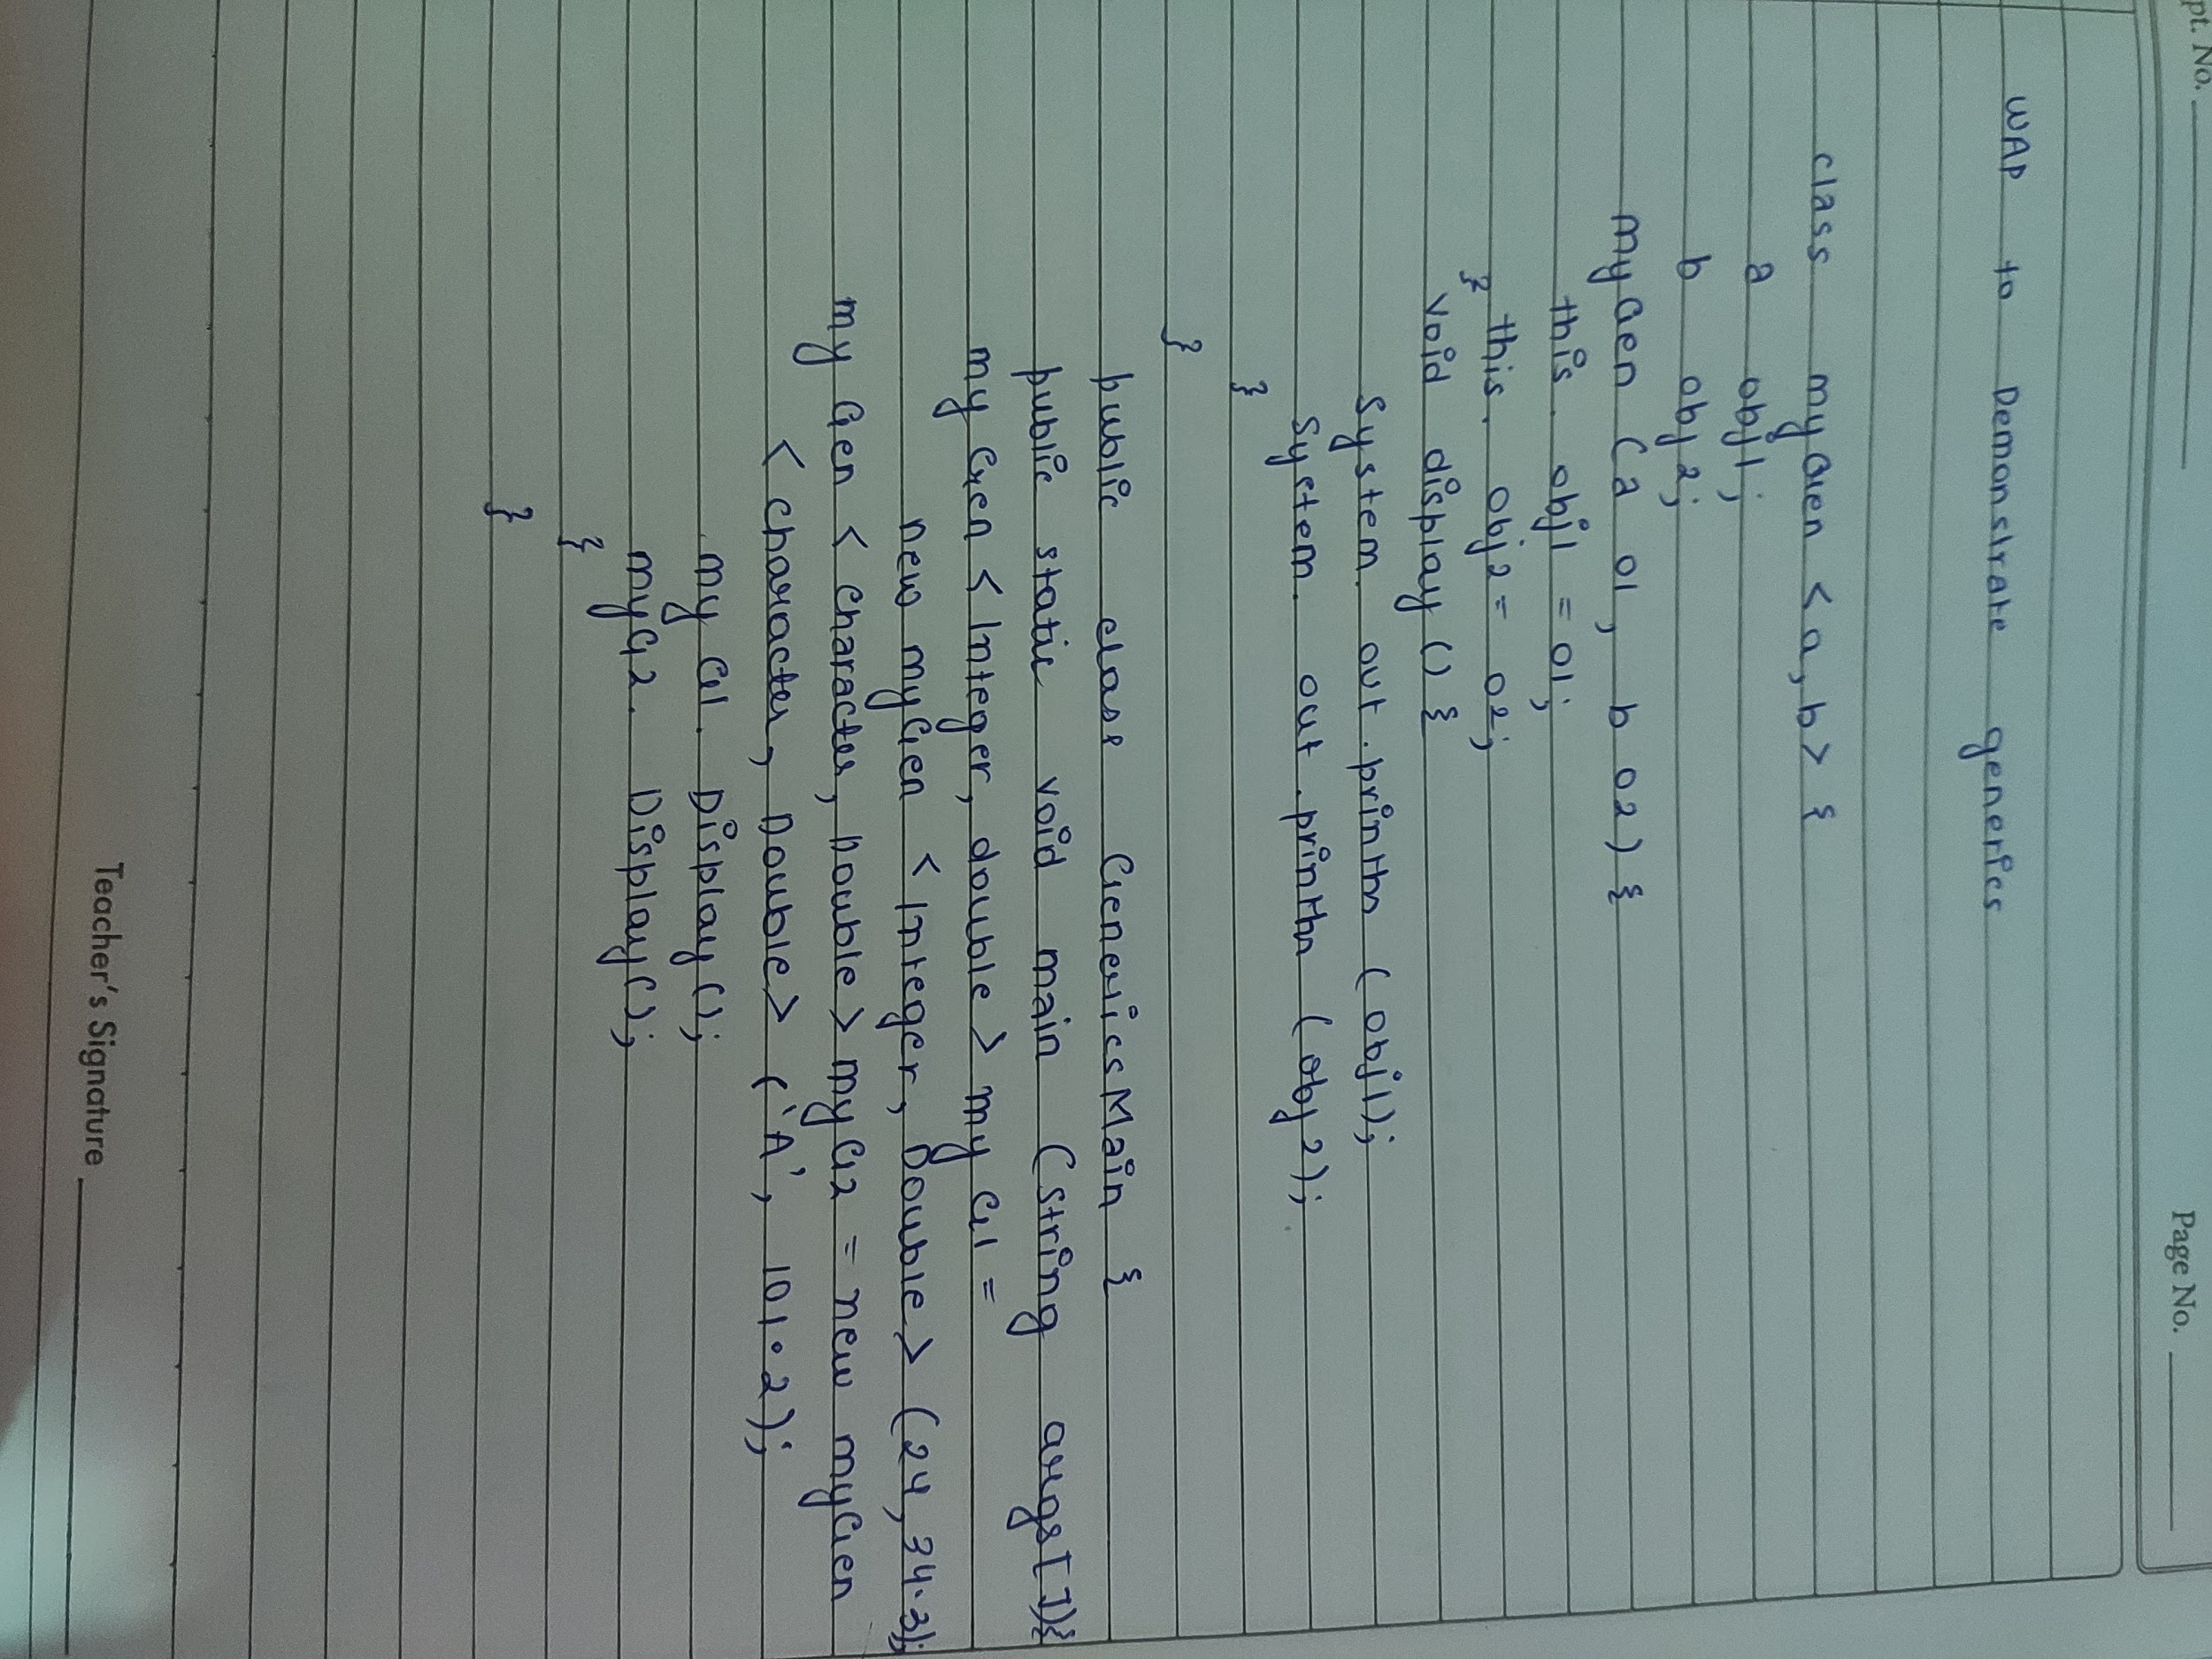 pt. No.
Page No.
WAP to Demonstrate generics
class myGen <a,b> {
a obj1;
b obj2;
myGen (a o1, b o2) {
this. obj1 = o1;
this. obj2 = o2;
}
void display () {
System. out. println (obj1);
System. out. println (obj2);
}
}
public class GenericsMain {
public static void main (string args[]){
my Gen < Integer, double > my G1 =
new myGen < Integer, Double > (24, 34.3);
my Gen < character, Double > my G2 = new myGen
< character, Double > ('A', 101.2);
my G1. Display ();
myG2. Display();
}
}
Teacher's Signature